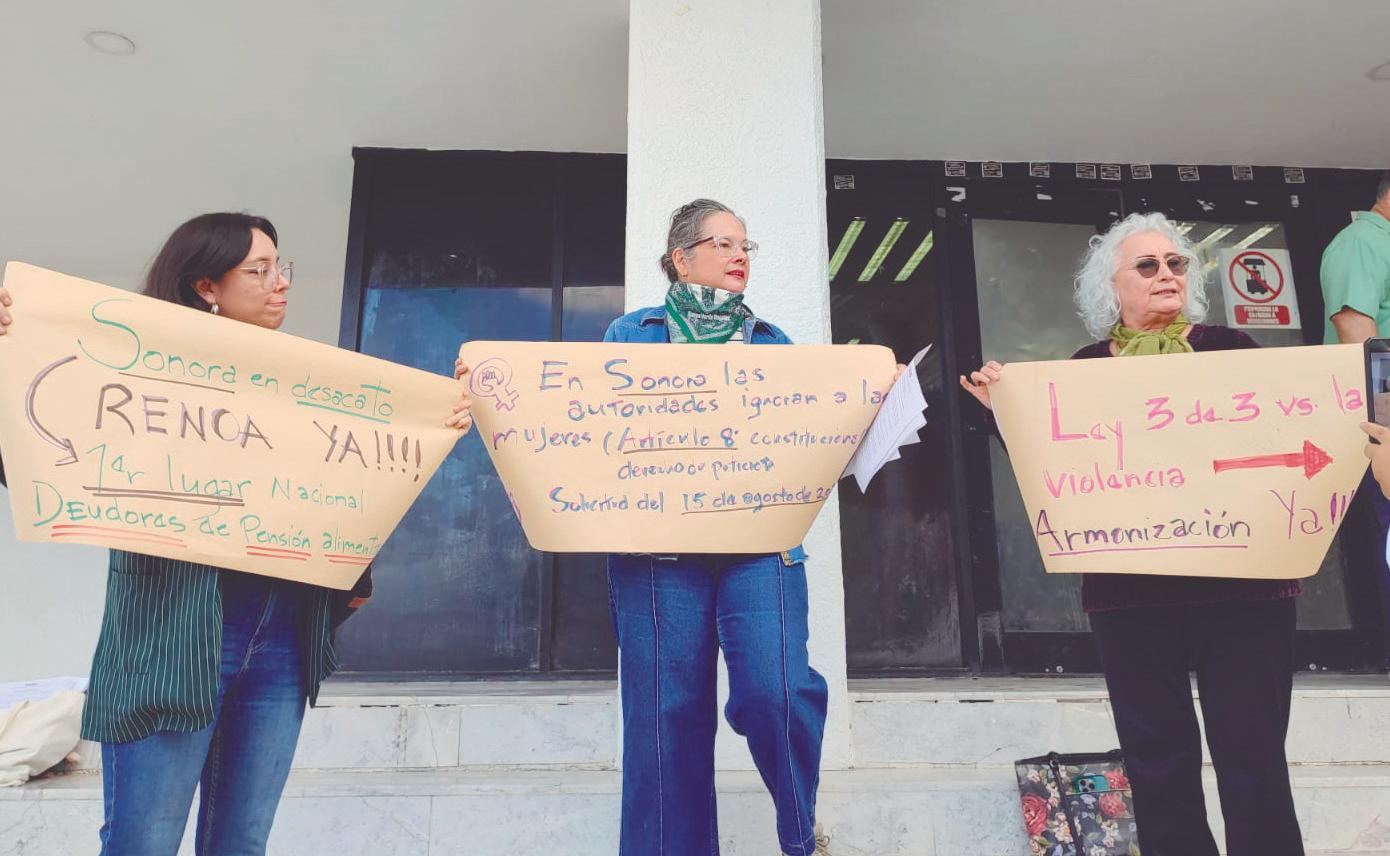 Sonora en desacato
RENOA YA!!!!
1er lugar Nacional
Deudores de Pensión aliment
En Sonora las
autoridades ignoran a la
mujeres (Artículo 8° constitucional
derecho de petición
Solicitud del 15 de agosto de 20
Ley 3 de 3 vs. la
violencia
Armonización Ya!!!
PROHIBIDO LA
ENTRADA A
VENDEDORES